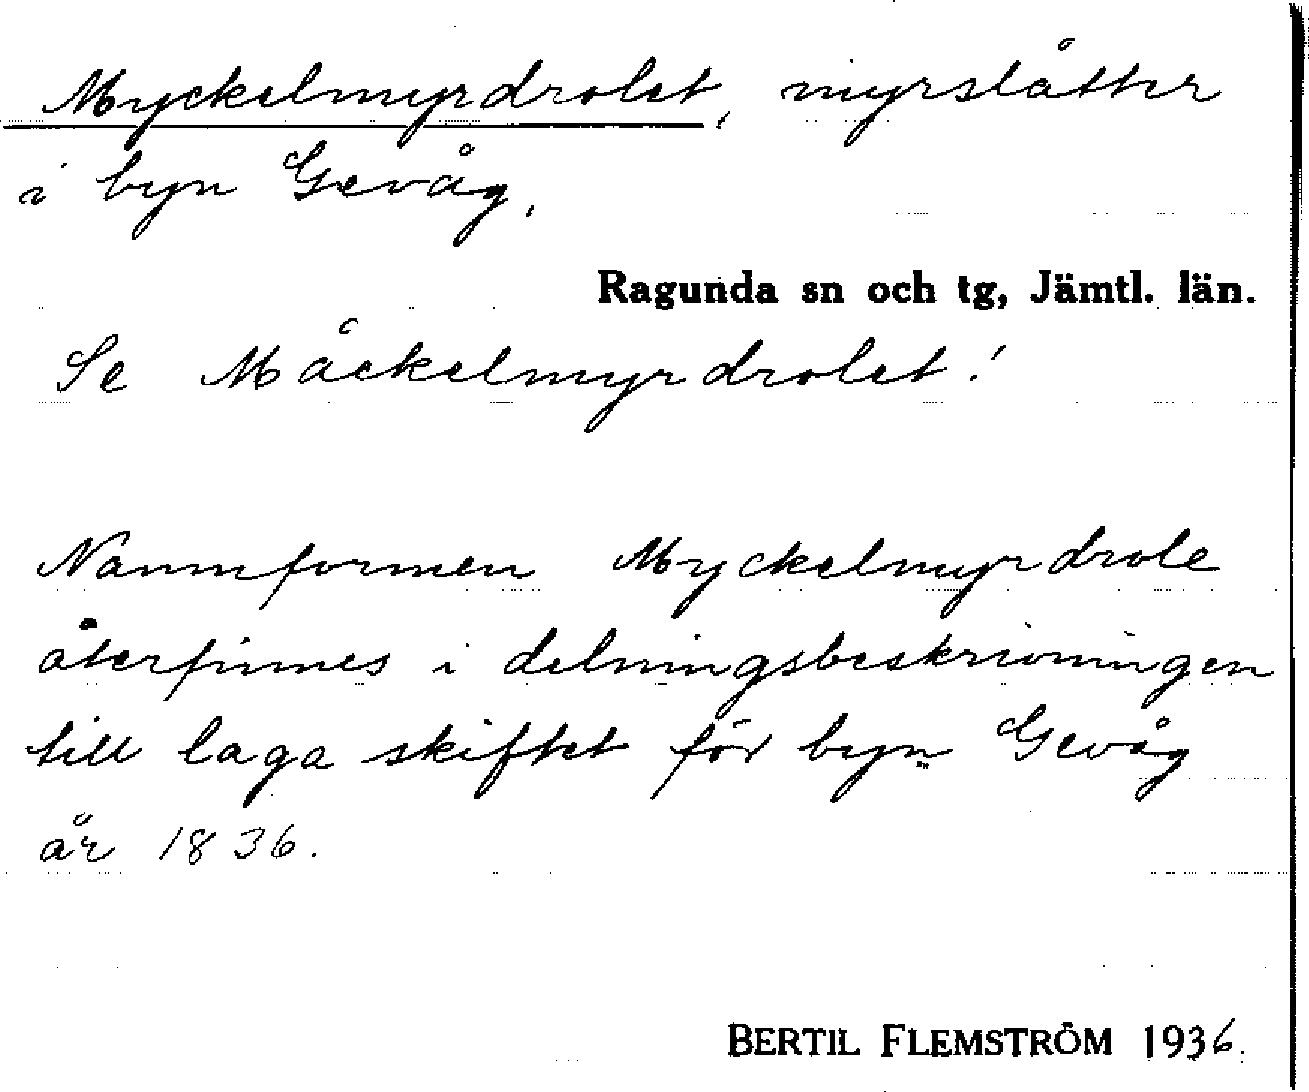 Myckelmyrdrolet, myrslåtter
i byn Gevåg,
Ragunda sn och tg, Jämtl. län.
Se Måckelmyrdrolet!
Namnformen Myckelmyrdrole
återfinnes i delningsbeskrivningen
till laga skiftet för byn Gevåg
år 1836.
BERTIL FLEMSTRÖM 1936.